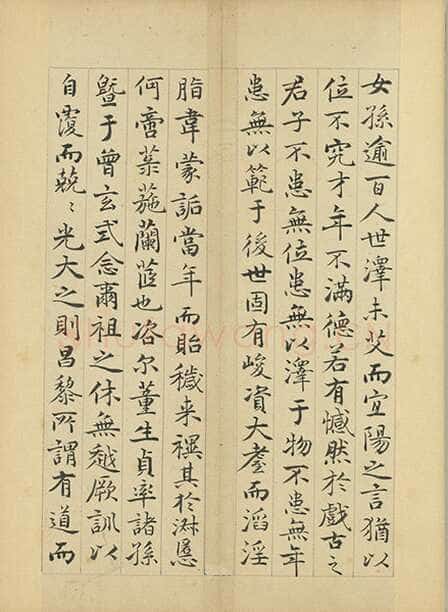 女孫逾百人世澤未艾而宜陽之言猶以
位不究才年不滿德若有憾然於戲古之
君子不患無位患無以澤于物不患無年
患無以範于後世固有峻資大耋而滔淫
脂韋蒙詬當年而貽穢来禩其於淋慝
何啻菉葹蘭茝也咨尔董生貞率諸孫
曁于曾玄式念爾祖之休無愆厥訓以
自覆而兢〻光大之則昌黎所謂有道而